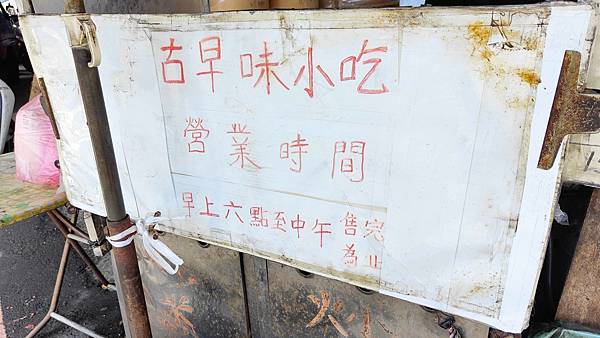 古早味小吃
營業時間
早上六點至中午售完
為止
火